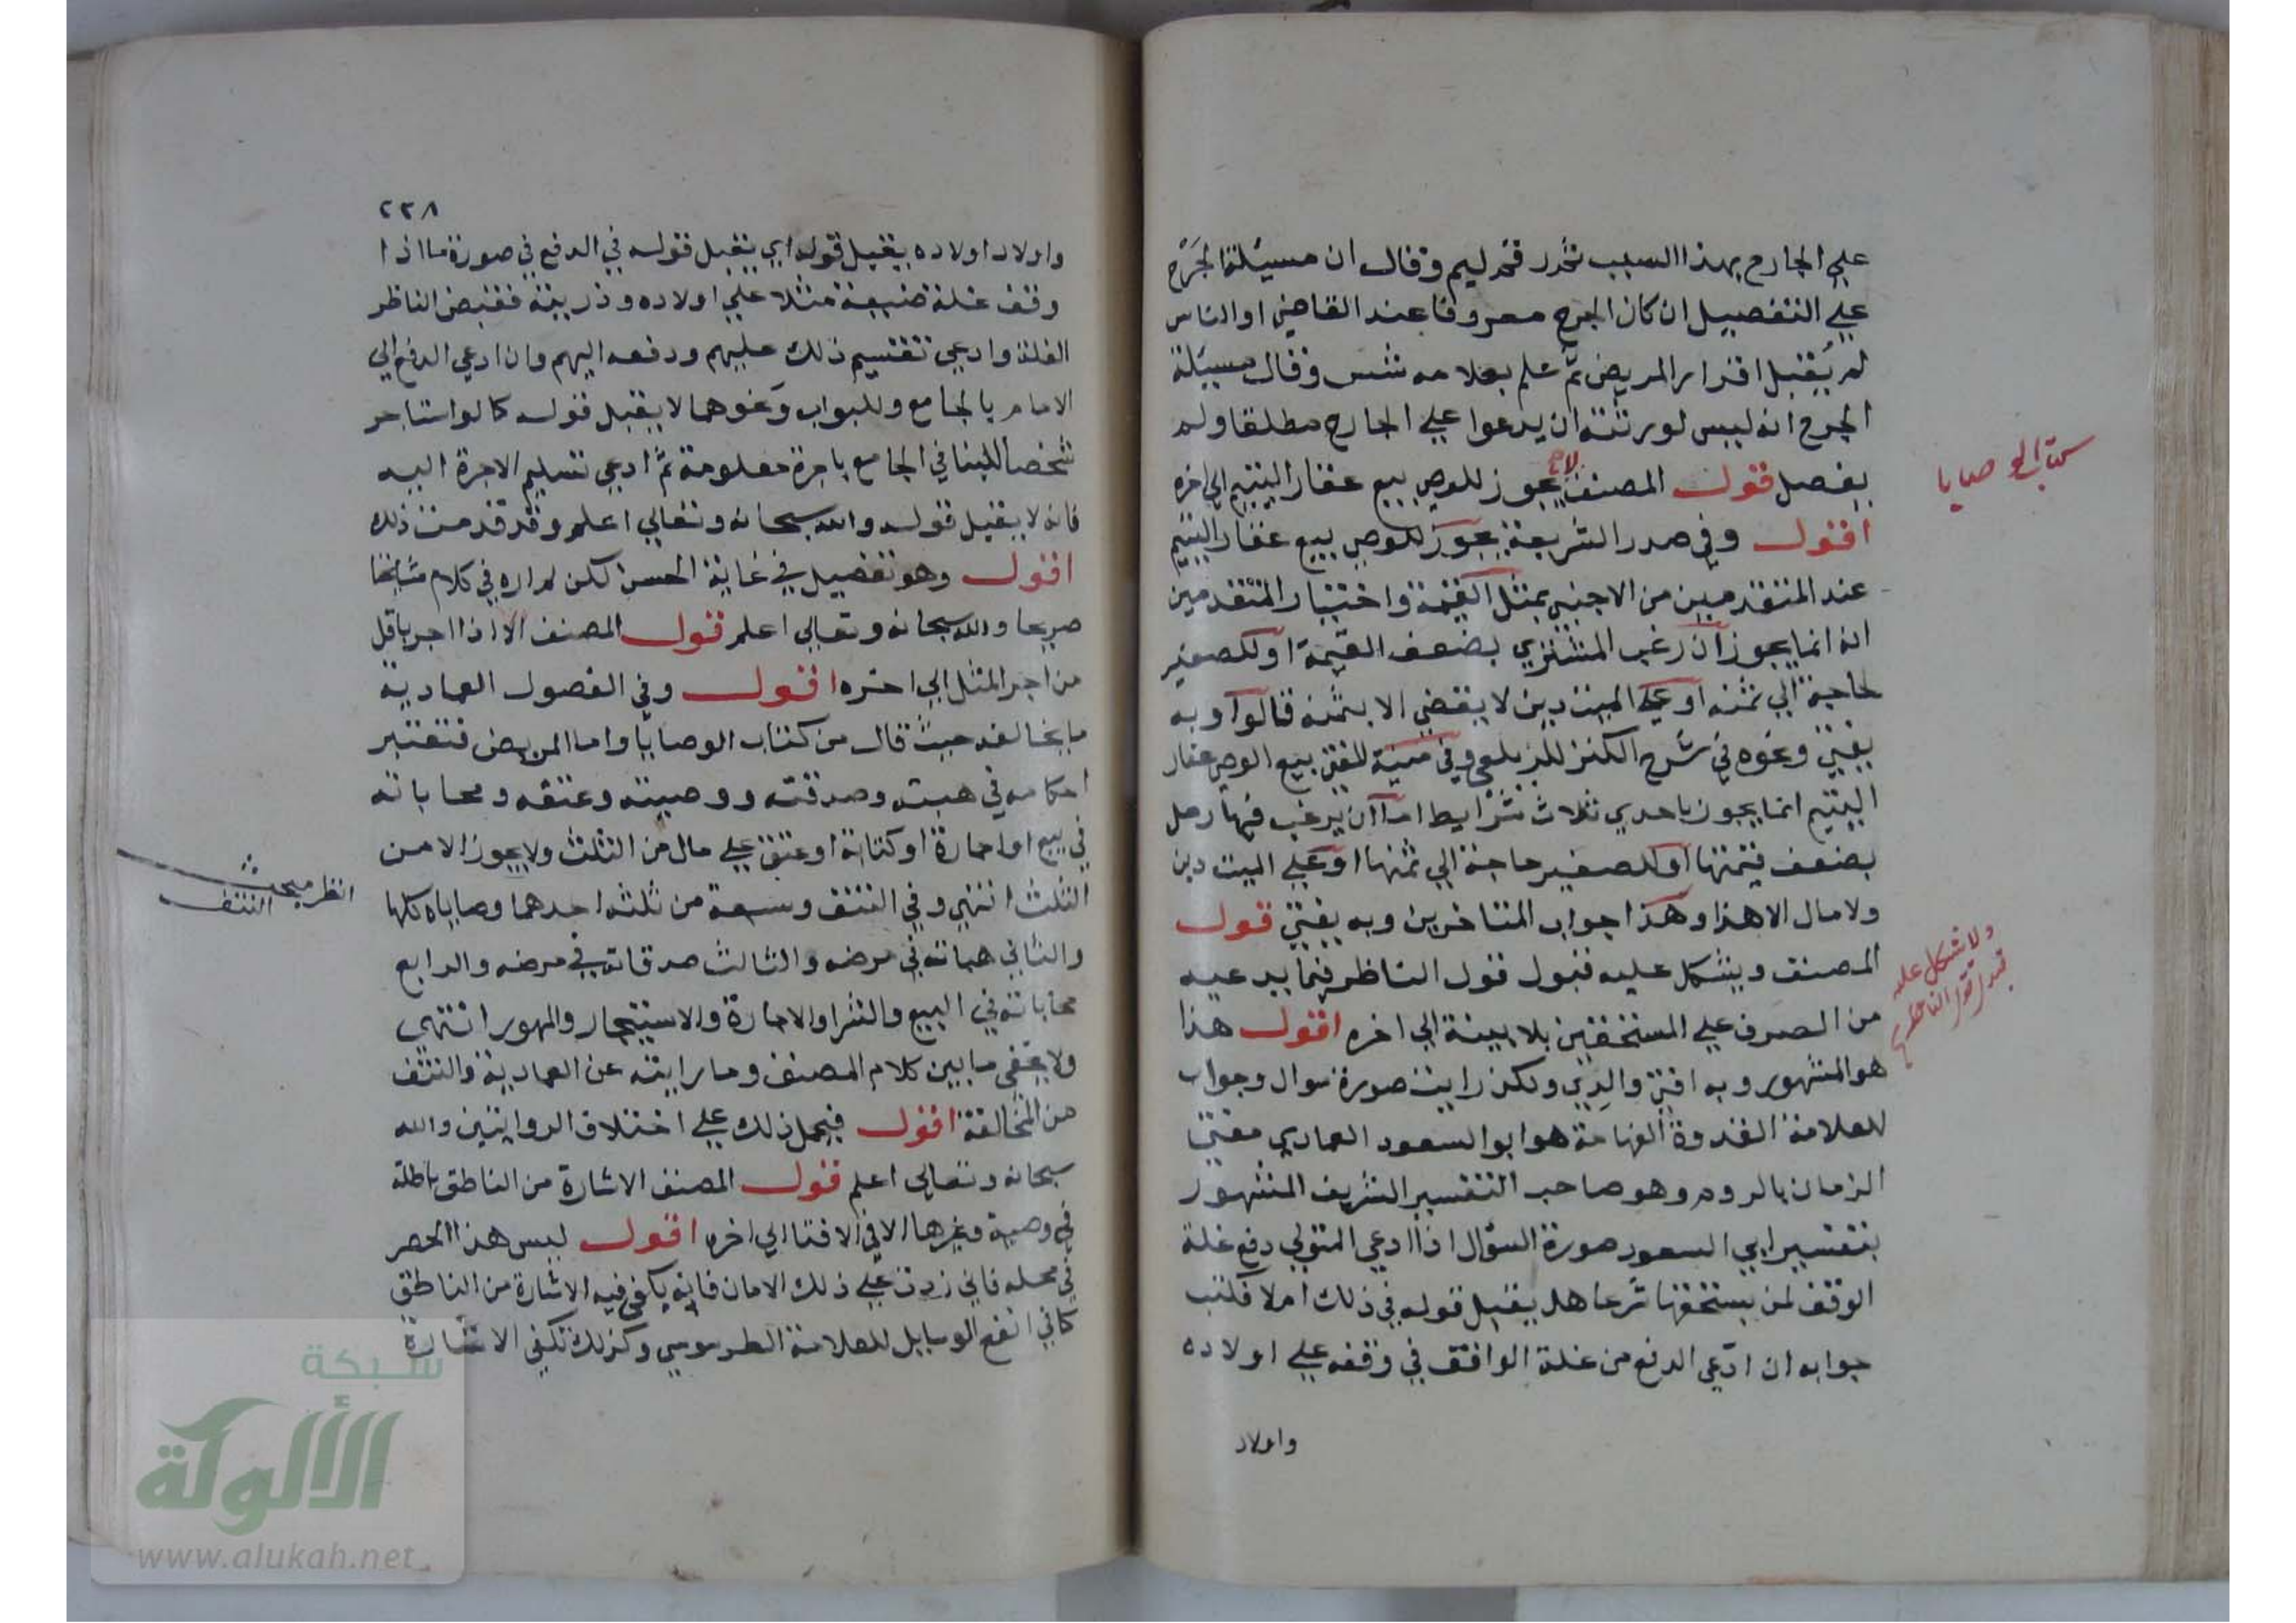 علي الجارح بهذا السبب تحرر فخر ليم وقال ان مسئلة الجرح
علي التفصيل ان كان الجرح معروفا عند القاضي او الناس
لم يقبل اقرار المريض ثم علم بعلامه شس وقال مسئلة
الجرح انه ليس لورثته ان يدعوا علي الجارح مطلقا ولم
يفصل قول المصنف لا يجوز للوصي بيع عقار اليتيم الي اخره
كتاب الوصايا
اقول وفي صدر الشريعة يجوز للوصي بيع عقار اليتيم
عند المتقدمين من الاجنبي بمثل القيمة واختيار المتقدمين
انه انما يجوز ان رغب المشتري بضعف القيمة او للصغير
حاجة الي ثمنه او علي الميت دين لا يقضي الا بثمنه قالوا وبه
يفتي ونحوه في شرح الكنز للزيلعي وفي منية المفتي بيع الوصي عقار
اليتيم انما يجوز باحدي ثلاث شرايط اما ان يرغب فيها رجل
بضعف قيمتها او للصغير حاجة الي ثمنها او علي الميت دين
ولا مال الا هذا وهذا جواب المتاخرين وبه يفتي قول
المصنف ويشكل عليه قبول قول الناظر فيما يدعيه
ولا يشكل عليه
قول الناظر
من الصرف علي المستحقين بلا بينة الي اخره اقول هذا
هو المشهور وبه افتي والدي ولكن رايت صورة سوال وجواب
للعلامة القدوة الفهامة هو ابو السعود العمادي مفتي
الزمان بالروم وهو صاحب التفسير الشريف المشهور
بتفسير ابي السعود صورة السؤال اذا ادعي المتولي دفع غلة
الوقف لمن يستحقها شرعا هل يقبل قوله في ذلك ام لا فكتب
جوابه ان ادعي الدفع من غلة الواقف في وقفه علي اولاده
واولاد
٢٣٨
واولاد اولاده يقبل قوله اي يقبل قوله في الدفع في صورة ما اذا
وقف غلة ضيعة مثلا علي اولاده وذريته فقبض الناظر
الغلة وادعي تقسيم ذلك عليهم ودفعه اليهم وان ادعي الدفع الي
الامام بالجامع وللبواب ونحوهما لا يقبل قوله كما لو استاجر
شخصا للبنا في الجامع باجرة معلومة ثم ادعي تسليم الاجرة اليه
فانه لا يقبل قوله والله سبحانه وتعالي اعلم وقد قدمت ذلك
اقول وهو تفصيل في غاية الحسن لكن لم اره في كلام مشايخنا
صريحا والله سبحانه وتعالي اعلم قول المصنف الا اذا اجر باقل
من اجر المثل الي اخره اقول وفي الفصول العمادية
ما يخالفه حيث قال من كتاب الوصايا واما المريض فتعتبر
احكامه في هبته وصدقته ووصيته وعتقه ومحاباته
في بيع او اجارة او كتابة او عتق علي مال من الثلث ولا يجوز الا من
الثلث انتهي وفي النتف وسعة من ثلثه احدهما وصاياه كلها
انظر مبحث
النتف
والثاني هباته في مرضه والثالث صدقاته في مرضه والرابع
محاباته في البيع والشرا والاجارة والاستيجار والمهور انتهي
ولا يخفي ما بين كلام المصنف وما رايته عن العمادية والنتف
من المخالفة اقول فيحمل ذلك علي اختلاف الروايتين والله
سبحانه وتعالي اعلم قول المصنف الاشارة من الناطق باطلة
في وصية وغيرها الا في الافتا الي اخره اقول ليس هذا الحصر
في محله فاني زدت علي ذلك الامان فانه يكفي فيه الاشارة من الناطق
كما في انفع الوسايل للعلامة الطرسوسي وكذلك تكفي الاشارة
شبكة
الألوكة
www.alukah.net